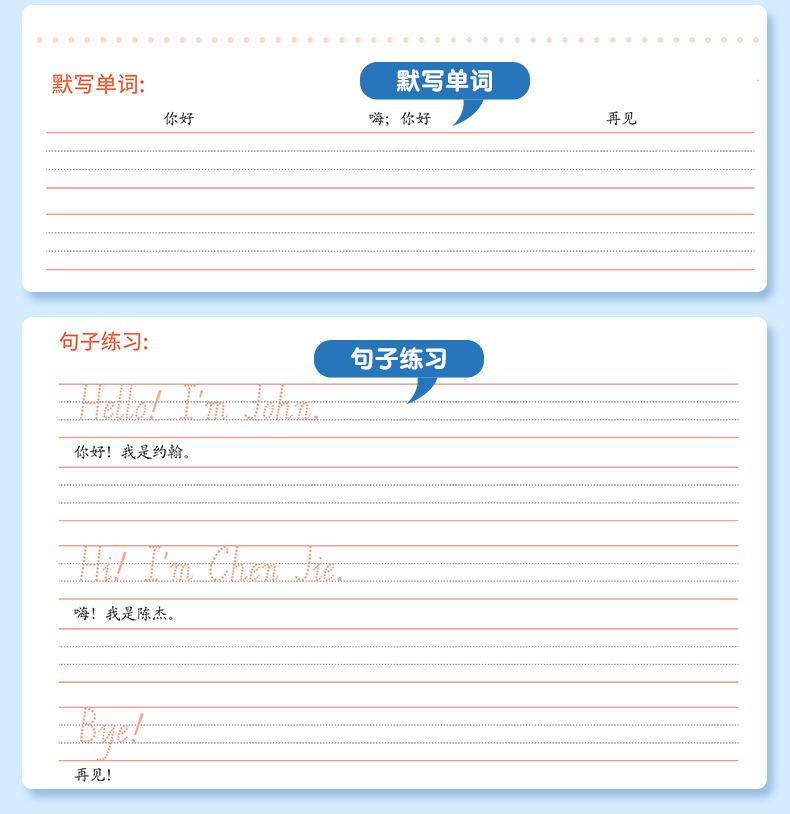 默写单词:
默写单词
你好 嗨；你好 再见
句子练习:
句子练习
Hello! I'm John.
你好！我是约翰。
Hi! I'm Chen Jie.
嗨！我是陈杰。
Bye!
再见！